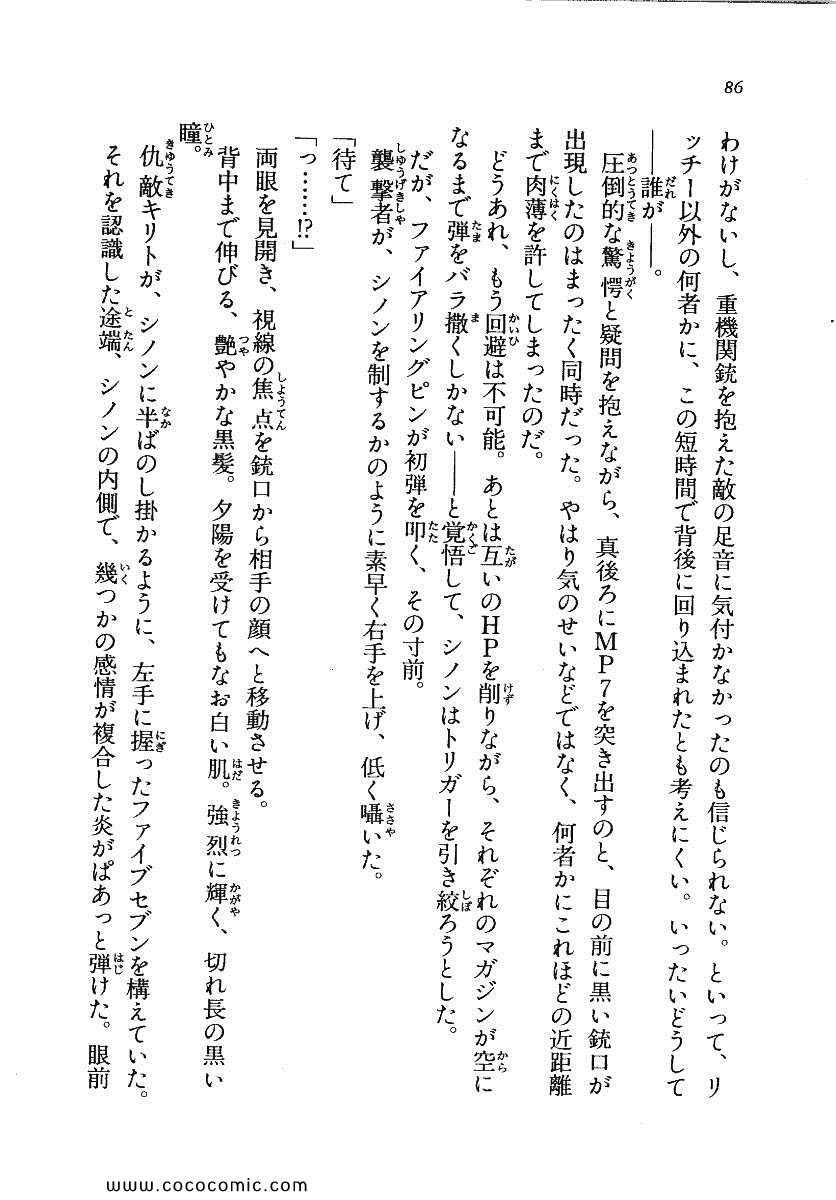 86
わけがないし、重機関銃を抱えた敵の足音に気付かなかったのも信じられない。といって、リ
ッチー以外の何者かに、この短時間で背後に回り込まれたとも考えにくい。いったいどうして
――誰が――。
圧倒的な驚愕と疑問を抱えながら、真後ろにMP7を突き出すのと、目の前に黒い銃口が
出現したのはまったく同時だった。やはり気のせいなどではなく、何者かにこれほどの近距離
まで肉薄を許してしまったのだ。
どうあれ、もう回避は不可能。あとは互いのHPを削りながら、それぞれのマガジンが空に
なるまで弾をバラ撒くしかない――と覚悟して、シノンはトリガーを引き絞ろうとした。
だが、ファイアリングピンが初弾を叩く、その寸前。
襲撃者が、シノンを制するかのように素早く右手を上げ、低く囁いた。
「待て」
「っ……!?」
両眼を見開き、視線の焦点を銃口から相手の顔へと移動させる。
背中まで伸びる、艶やかな黒髪。夕陽を受けてもなお白い肌。強烈に輝く、切れ長の黒い
瞳。
仇敵キリトが、シノンに半ばのし掛かるように、左手に握ったファイブセブンを構えていた。
それを認識した途端、シノンの内側で、幾つかの感情が複合した炎がぱあっと弾けた。眼前
www.cococomic.com